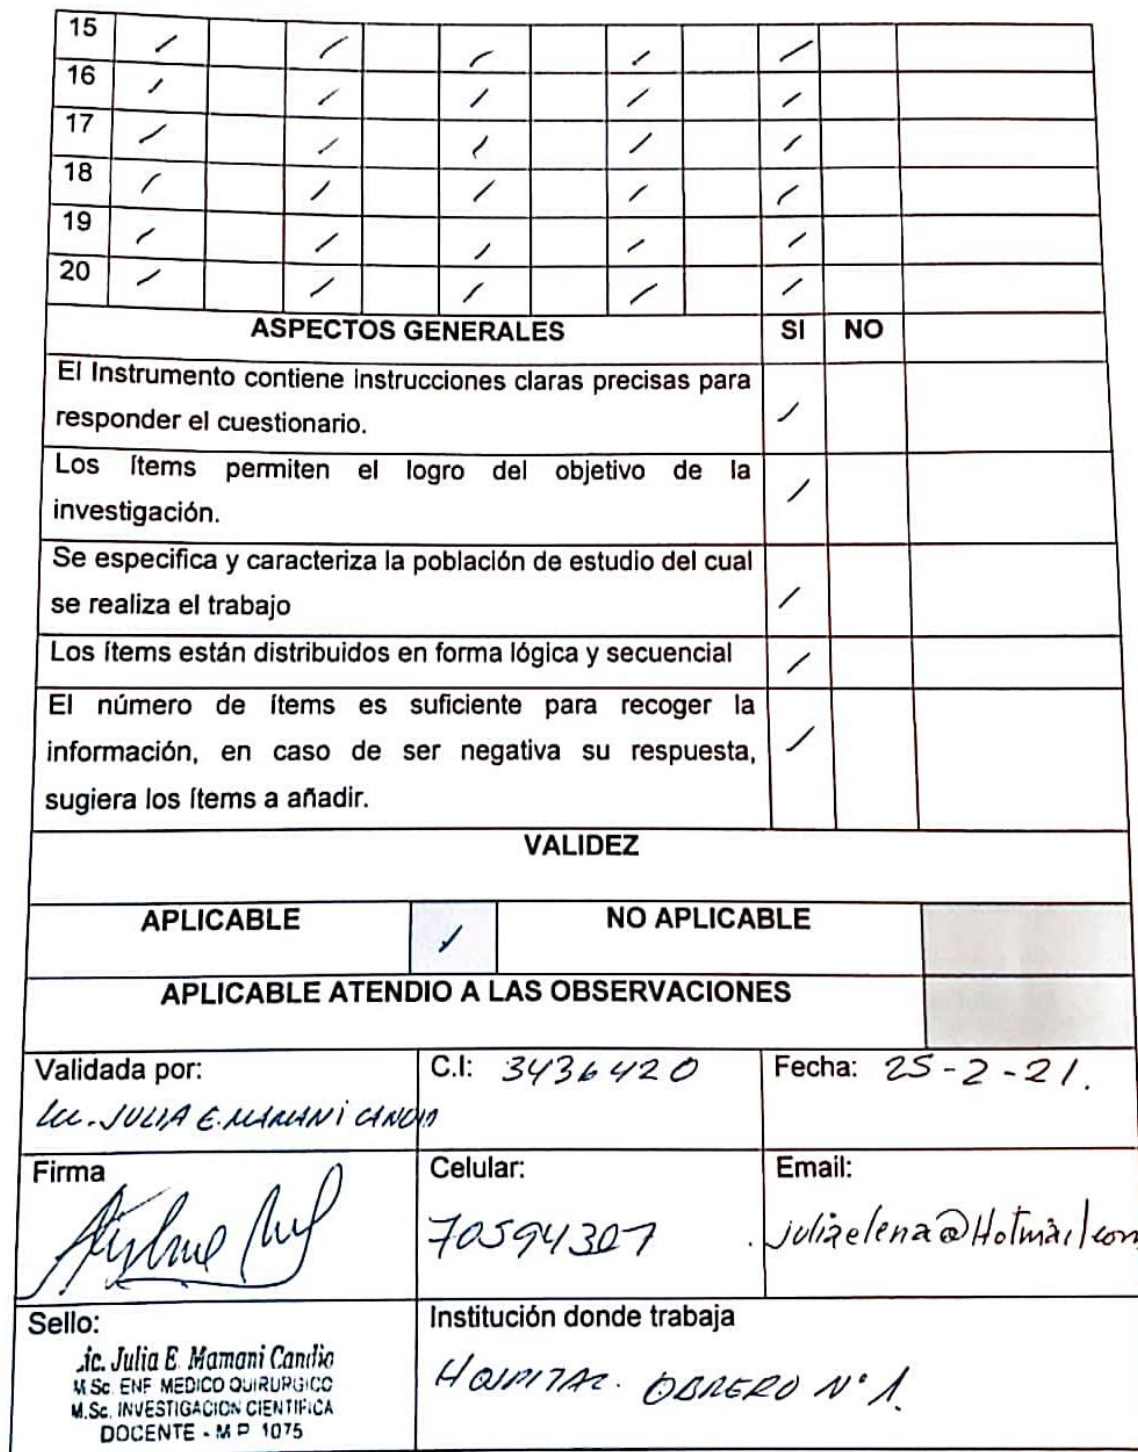 15
16
17
18
19
20
ASPECTOS GENERALES SI NO
El Instrumento contiene instrucciones claras precisas para
responder el cuestionario.
Los ítems permiten el logro del objetivo de la
investigación.
Se especifica y caracteriza la población de estudio del cual
se realiza el trabajo
Los ítems están distribuidos en forma lógica y secuencial
El número de ítems es suficiente para recoger la
información, en caso de ser negativa su respuesta,
sugiera los ítems a añadir.
VALIDEZ
APLICABLE ✓ NO APLICABLE
APLICABLE ATENDIO A LAS OBSERVACIONES
Validada por: C.I: 3436420 Fecha: 25-2-21.
Lic. JULIA E. MAMANI CANDIA
Firma Celular: Email:
70594307 juliaelena@Hotmail.com
Sello: Institución donde trabaja
.ic. Julia E. Mamani Candia
M.Sc. ENF MEDICO QUIRURGICO
M.Sc. INVESTIGACION CIENTIFICA
DOCENTE - M P 1075
HOSPITAL OBRERO N° 1.